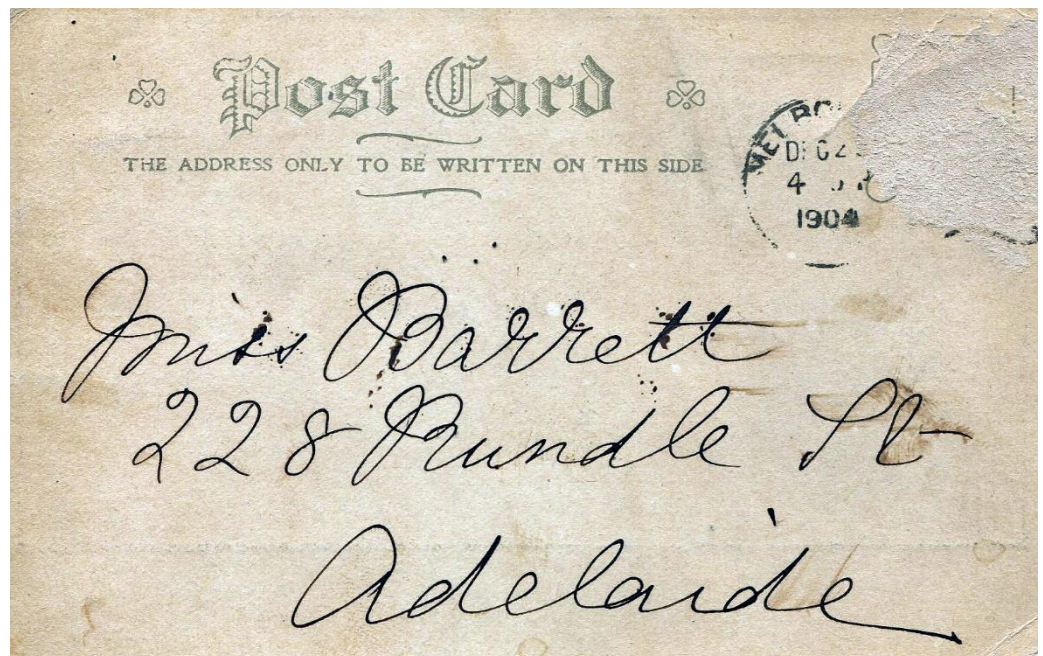 Post Card
THE ADDRESS ONLY TO BE WRITTEN ON THIS SIDE
1904
Miss Barrett
228 Rundle St
Adelaide